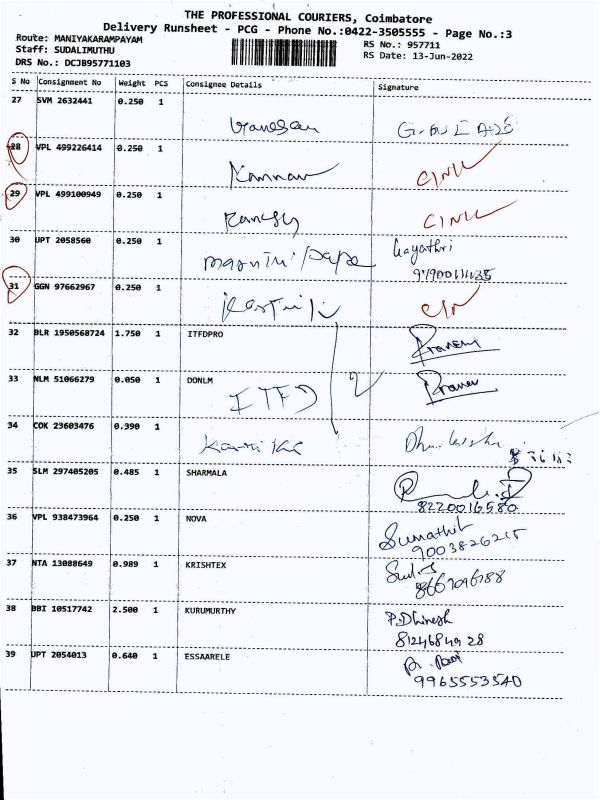 THE PROFESSIONAL COURIERS, Coimbatore
Delivery Runsheet - PCG - Phone No.:0422-3505555 - Page No.:3
Route: MANIYAKARAMPAYAM
RS No.: 957711
Staff: SUDALIMUTHU
RS Date: 13-Jun-2022
DRS No.: DCJB95771103
S No Consignment No Weight PCS Consignee Details Signature
27 SVM 2632441 0.250 1
Ganesan
28 VPL 499226414 0.250 1
Kannan
29 VPL 499100949 0.250 1
Ramesh
30 UPT 2058560 0.250 1 Gayathri
31 GGN 97662967 0.250 1
32 BLR 1950568724 1.750 1 ITFDPRO
Pranav
33 NLM 51066279 0.050 1 DONLM Pranav
ITFD 2
34 COK 23603476 0.390 1
35 SLM 297405205 0.485 1 SHARMALA
8220016580
36 VPL 938473964 0.250 1 NOVA
Sumathi
9003826215
37 NTA 13088649 0.989 1 KRISHTEX
38 BBI 10517742 2.500 1 KURUMURTHY P.Dhinesh
8124684928
39 UPT 2054013 0.640 1 ESSAARELE
9965553540